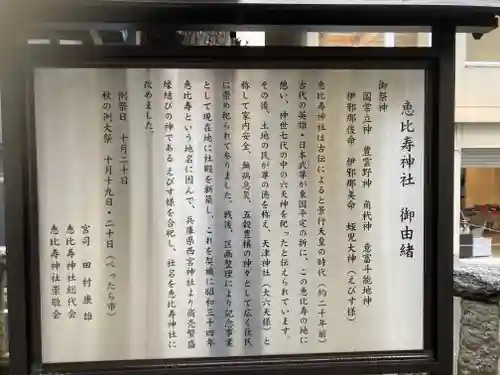 恵比寿神社 御由緒
御祭神
国常立神 豊雲野神 角杙神 意富斗能地神
伊邪那岐命 伊邪那美命 蛭児大神(えびす様)
恵比寿神社は古伝によると景行天皇の時代(約二千年前)
古代の英雄・日本武尊が東国平定の折に、この恵比寿の地に
憩い、神世七代の中の六天神を祀ったと伝えられています。
その後、土地の民が尊の徳を称え、天津神社(大六天様)と
称して家内安全、無病息災、五穀豊穣の神々として広く住民
に崇め祀られて参りました。戦後、区画整理により記念事業
として現在地に社殿を新築し、これを契機に昭和三十四年
恵比寿という地名に因んで、兵庫県西宮神社より商売繁盛
縁結びの神である えびす様を合祀し、社名を恵比寿神社に
改めました。
例祭日 十月二十日
秋の例大祭 十月十九日・二十日(べったら市)
宮司 田村 康雄
恵比寿神社総代会
恵比寿神社崇敬会